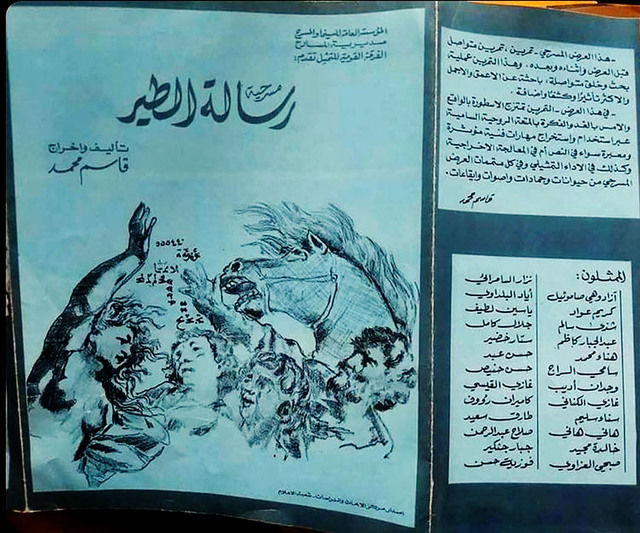 المؤسسة العامة للسينما والمسرح
مديرية المسارح
الفرقة القومية للتمثيل تقدم:
مسرحية
رسالة الطير
تأليف واخراج
قاسم محمد
اعداد مركز الابحاث والدراسات - شعبة الاعلام
- هذا العرض المسرحي - تمرين، تمرين متواصل
قبل العرض واثناءه وبعده. وهذا التمرين عملية
بحث وخلق متواصلة، باحثة عن الاعمق والاجمل
والاكثر تأثيراً وكشفاً واضافة.
- في هذا العرض - التمرين تمتزج الاسطورة بالواقع
والامس بالغد والفكر بالمتعة الروحية السامية
عبر استخدام واستخراج مهارات فنية مؤثرة
ومعبرة سواء في النص أم في المعالجة الاخراجية
وكذلك في الاداء التمثيلي وفي كل متممات العرض
المسرحي من حيوانات وجمادات واصوات وايقاعات.
قاسم محمد
الممثلون:
آزادوهي صاموئيل
كريم عواد
شذى سالم
عبدالجبار كاظم
هناء محمد
سامي السراج
وجدان أديب
غازي الكناني
سناء سليم
هاني هاني
خالدة مجيد
صبحي العزاوي
نزار السامرائي
أياد البلداوي
ياسين لطيف
جلال كامل
ستار خضير
حسن عبد
حسن حنيص
غازي القيسي
كامران رؤوف
طارق سعيد
صلاح عبدالرحمن
جبار جنكير
فوزية حسن